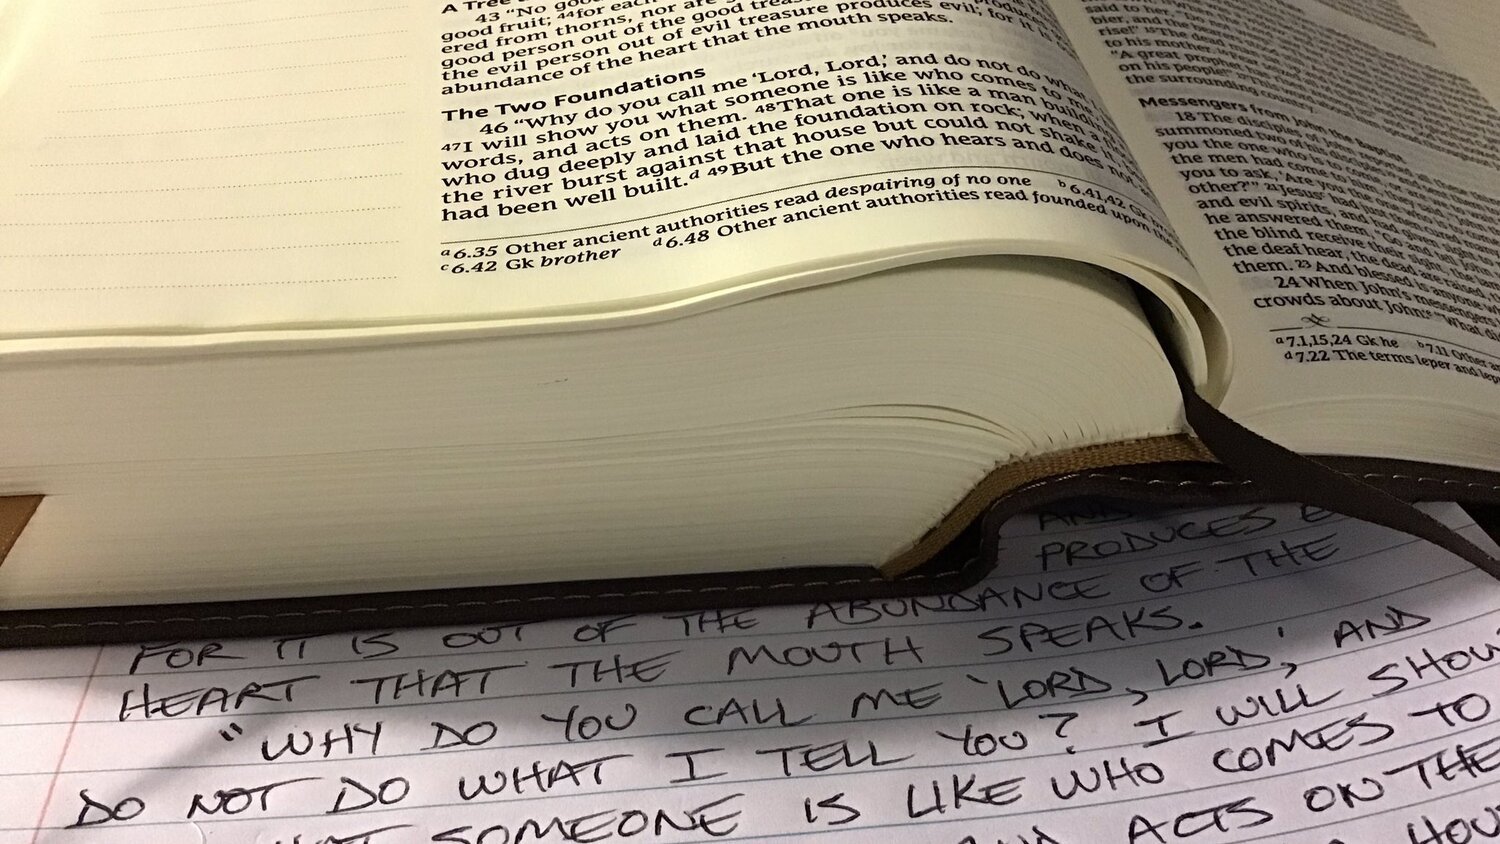 A Tree
43 "No good
good fruit; 44for each
ered from thorns, nor are
good person out of the good
the evil person out of evil treasure produces evil; for it is
abundance of the heart that the mouth speaks.
The Two Foundations
46 "Why do you call me 'Lord, Lord,' and do not do what I
47I will show you what someone is like who comes to me,
words, and acts on them. 48That one is like a man building
who dug deeply and laid the foundation on rock; when a
the river burst against that house but could not shake it,
had been well built.d 49But the one who hears and does not
a6.35 Other ancient authorities read despairing of no one b6.41,42 Gk
c6.42 Gk brother d6.48 Other ancient authorities read founded upon the
said to her, "Do
bier, and the
rise!" 15The dead
to his mother.
"A great prophet
on his people!"
the surrounding country.
Messengers from John the Baptist
18 The disciples of John
summoned two of his disciples
you the one who is to come, or
the men had come to
you to ask, 'Are you the
other?'" 21Jesus had
and evil spirits, and had given sight
he answered them, "Go and tell John
the blind receive their sight, the
the deaf hear, the dead are raised,
them. 23And blessed is anyone
24 When John's messengers
crowds about John:e "What did
a7.1,15,24 Gk he b7.11 Other
d7.22 The terms leper and
AND
PRODUCES
FOR IT IS OUT OF THE ABUNDANCE OF THE
HEART THAT THE MOUTH SPEAKS.
"WHY DO YOU CALL ME 'LORD, LORD,' AND
DO NOT DO WHAT I TELL YOU? I WILL SHOW
SOMEONE IS LIKE WHO COMES TO
ACTS ON THE